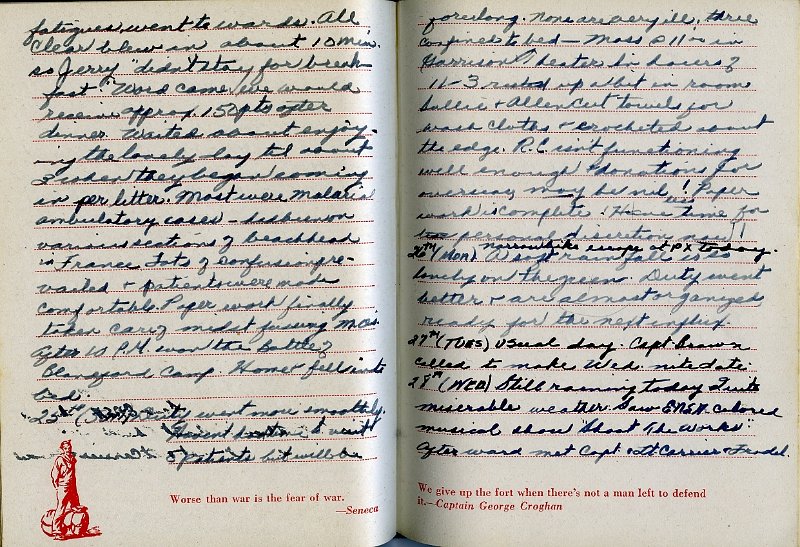 fatigues, went to wards. All
Clear blew in about 10 min.
so Jerry "didn't stay for break-
fast." Word came we would
receive approx. 150 pts after
dinner. Waited about enjoy-
ing the lovely day til about
3 when they began coming
in per litter. Most were Malaria
ambulatory cases - has been on
various sections of beachhead
in France. Lots of confusion pre-
vailed & patients were made
comfortable. Paper work finally
taken care of midst
After 10 P.M. won the Battle of
Blandford Camp. Home & fell into
bed.
25th (Sun) Duty went more smoothly.
5 patients but will be
Worse than war is the fear of war.
—Seneca
for long. None are very ill, three
confined to bed - Mass @ 11:00 in
Harrison's theater. In hours of
11-3 rested up a bit in room
Lullie & Allen cut towels for
wash cloths & crocheted about
the edge. R.C. isn't functioning
well enough! Donations for
overseas may be nil! Paper
work is complete! Have less time for
personal discretion now!!
26th (MON) Wasn't rainfall is so
lovely on the green. Duty went
better & are almost organized
ready for the next influx.
27th (TUES) Usual day. Capt Brown
called to make Wed. nite date.
28th (WED) Still raining today. Quite
miserable weather. Saw colored
musical show "Shoot The Works"
After ward met Capt & Lt Carrier & Fradel.
We give up the fort when there's not a man left to defend
it.—Captain George Croghan